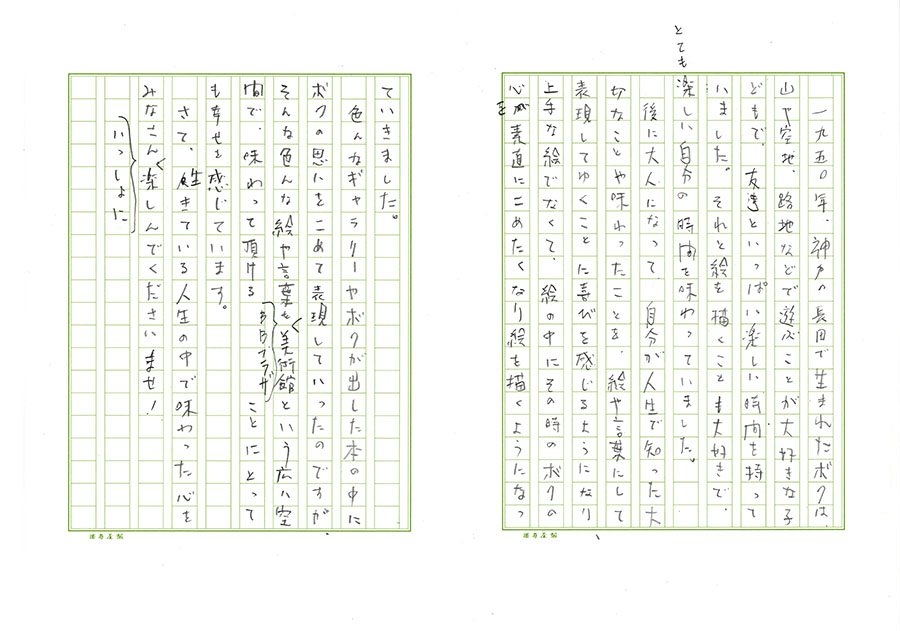 一九五〇年、神戸の長田で生まれたボクは、
山や空地、路地などで遊ぶことが大好きな子
どもで、友達といっぱい楽しい時間を持って
いました。それと絵を描くことも大好きで、
とても
楽しい自分の時間を味わっていました。
後に大人になって、自分が人生で知った大
切なことや味わったことを、絵や言葉にして
表現してゆくことに喜びを感じるようになり
上手な絵でなくて、絵の中にその時のボクの
心を素直にこめたくなり絵を描くようになっ
ていきました。
色んなギャラリーやボクが出した本の中に
ボクの思いをこめて表現していったのですが
そんな色んな絵や言葉を美術館という広い空
BBプラザ
間で、味わって頂けることにとって
も幸せを感じています。
さて、生きている人生の中で味わった心を
みなさん楽しんでくださいませ！
いっしょに